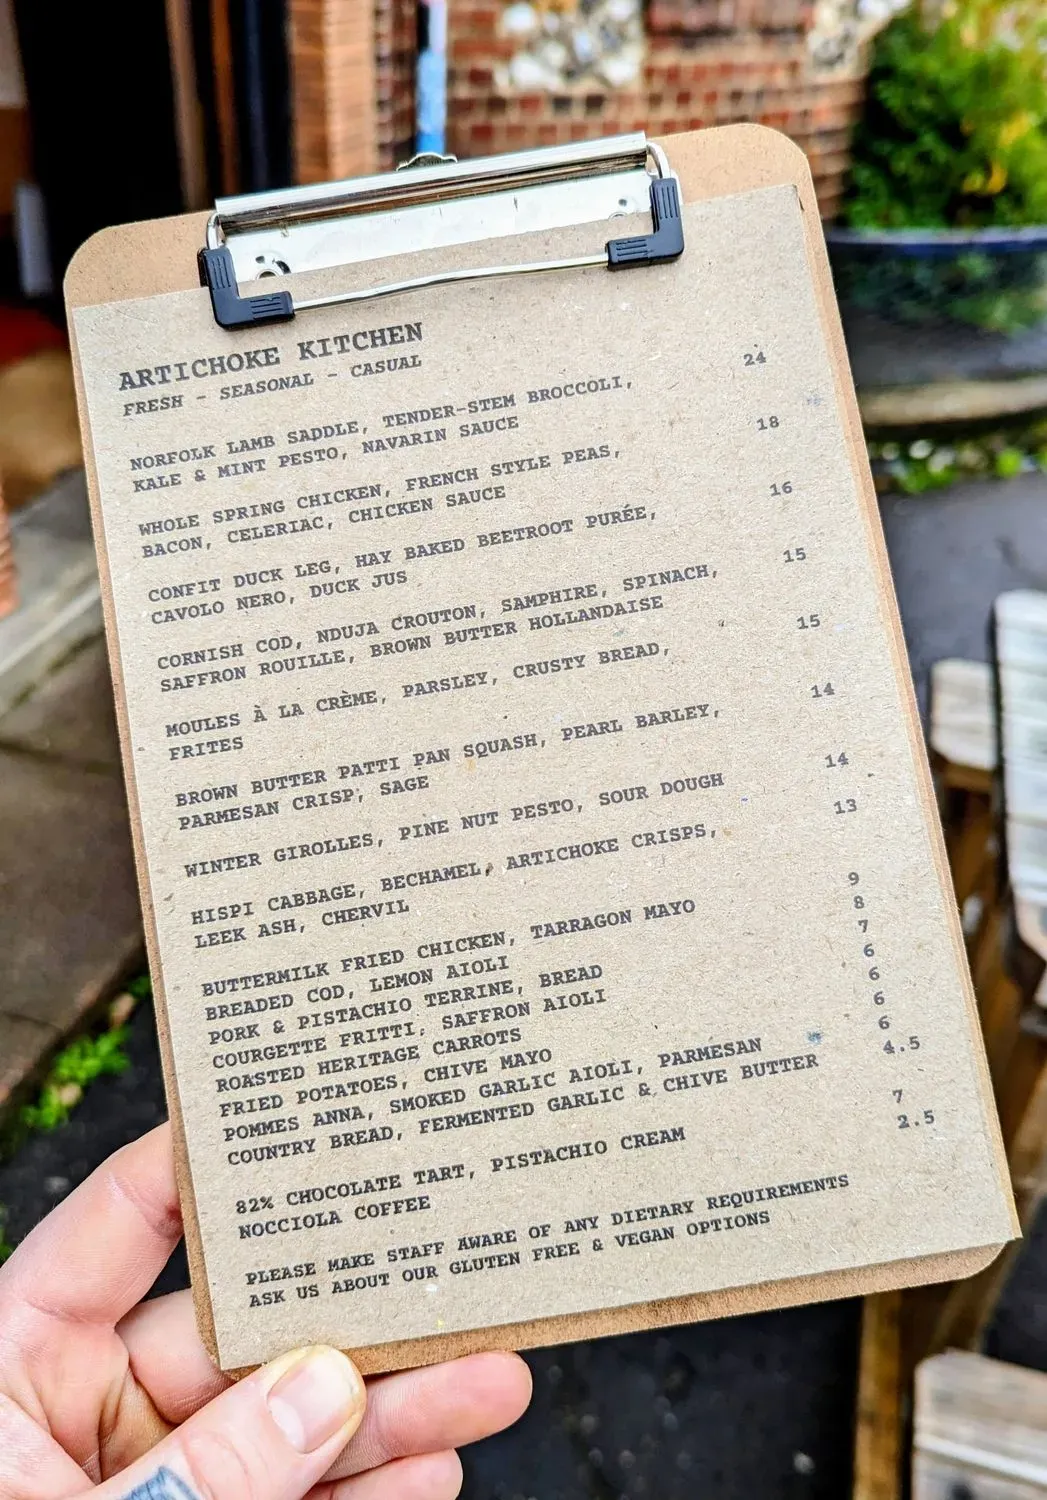 ARTICHOKE KITCHEN
FRESH - SEASONAL - CASUAL
NORFOLK LAMB SADDLE, TENDER-STEM BROCCOLI, 24
KALE & MINT PESTO, NAVARIN SAUCE
WHOLE SPRING CHICKEN, FRENCH STYLE PEAS, 18
BACON, CELERIAC, CHICKEN SAUCE
CONFIT DUCK LEG, HAY BAKED BEETROOT PURÉE, 16
CAVOLO NERO, DUCK JUS
CORNISH COD, NDUJA CROUTON, SAMPHIRE, SPINACH, 15
SAFFRON ROUILLE, BROWN BUTTER HOLLANDAISE
MOULES À LA CRÈME, PARSLEY, CRUSTY BREAD, 15
FRITES
BROWN BUTTER PATTI PAN SQUASH, PEARL BARLEY, 14
PARMESAN CRISP, SAGE
WINTER GIROLLES, PINE NUT PESTO, SOUR DOUGH 14
HISPI CABBAGE, BECHAMEL, ARTICHOKE CRISPS, 13
LEEK ASH, CHERVIL
BUTTERMILK FRIED CHICKEN, TARRAGON MAYO 9
BREADED COD, LEMON AIOLI 8
PORK & PISTACHIO TERRINE, BREAD 7
COURGETTE FRITTI, SAFFRON AIOLI 6
ROASTED HERITAGE CARROTS 6
FRIED POTATOES, CHIVE MAYO 6
POMMES ANNA, SMOKED GARLIC AIOLI, PARMESAN 6
COUNTRY BREAD, FERMENTED GARLIC & CHIVE BUTTER 4.5
82% CHOCOLATE TART, PISTACHIO CREAM 7
NOCCIOLA COFFEE 2.5
PLEASE MAKE STAFF AWARE OF ANY DIETARY REQUIREMENTS
ASK US ABOUT OUR GLUTEN FREE & VEGAN OPTIONS